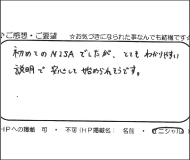 ご感想・ご要望 ☆お気づきになられた事なんでも結構です☆
初めてのNISAでしたが、とても わかりやすい
説明で 安心して 始められそうです。
HPへの掲載 可 ・ 不可(HP掲載名: 名前 ・ イニシャル